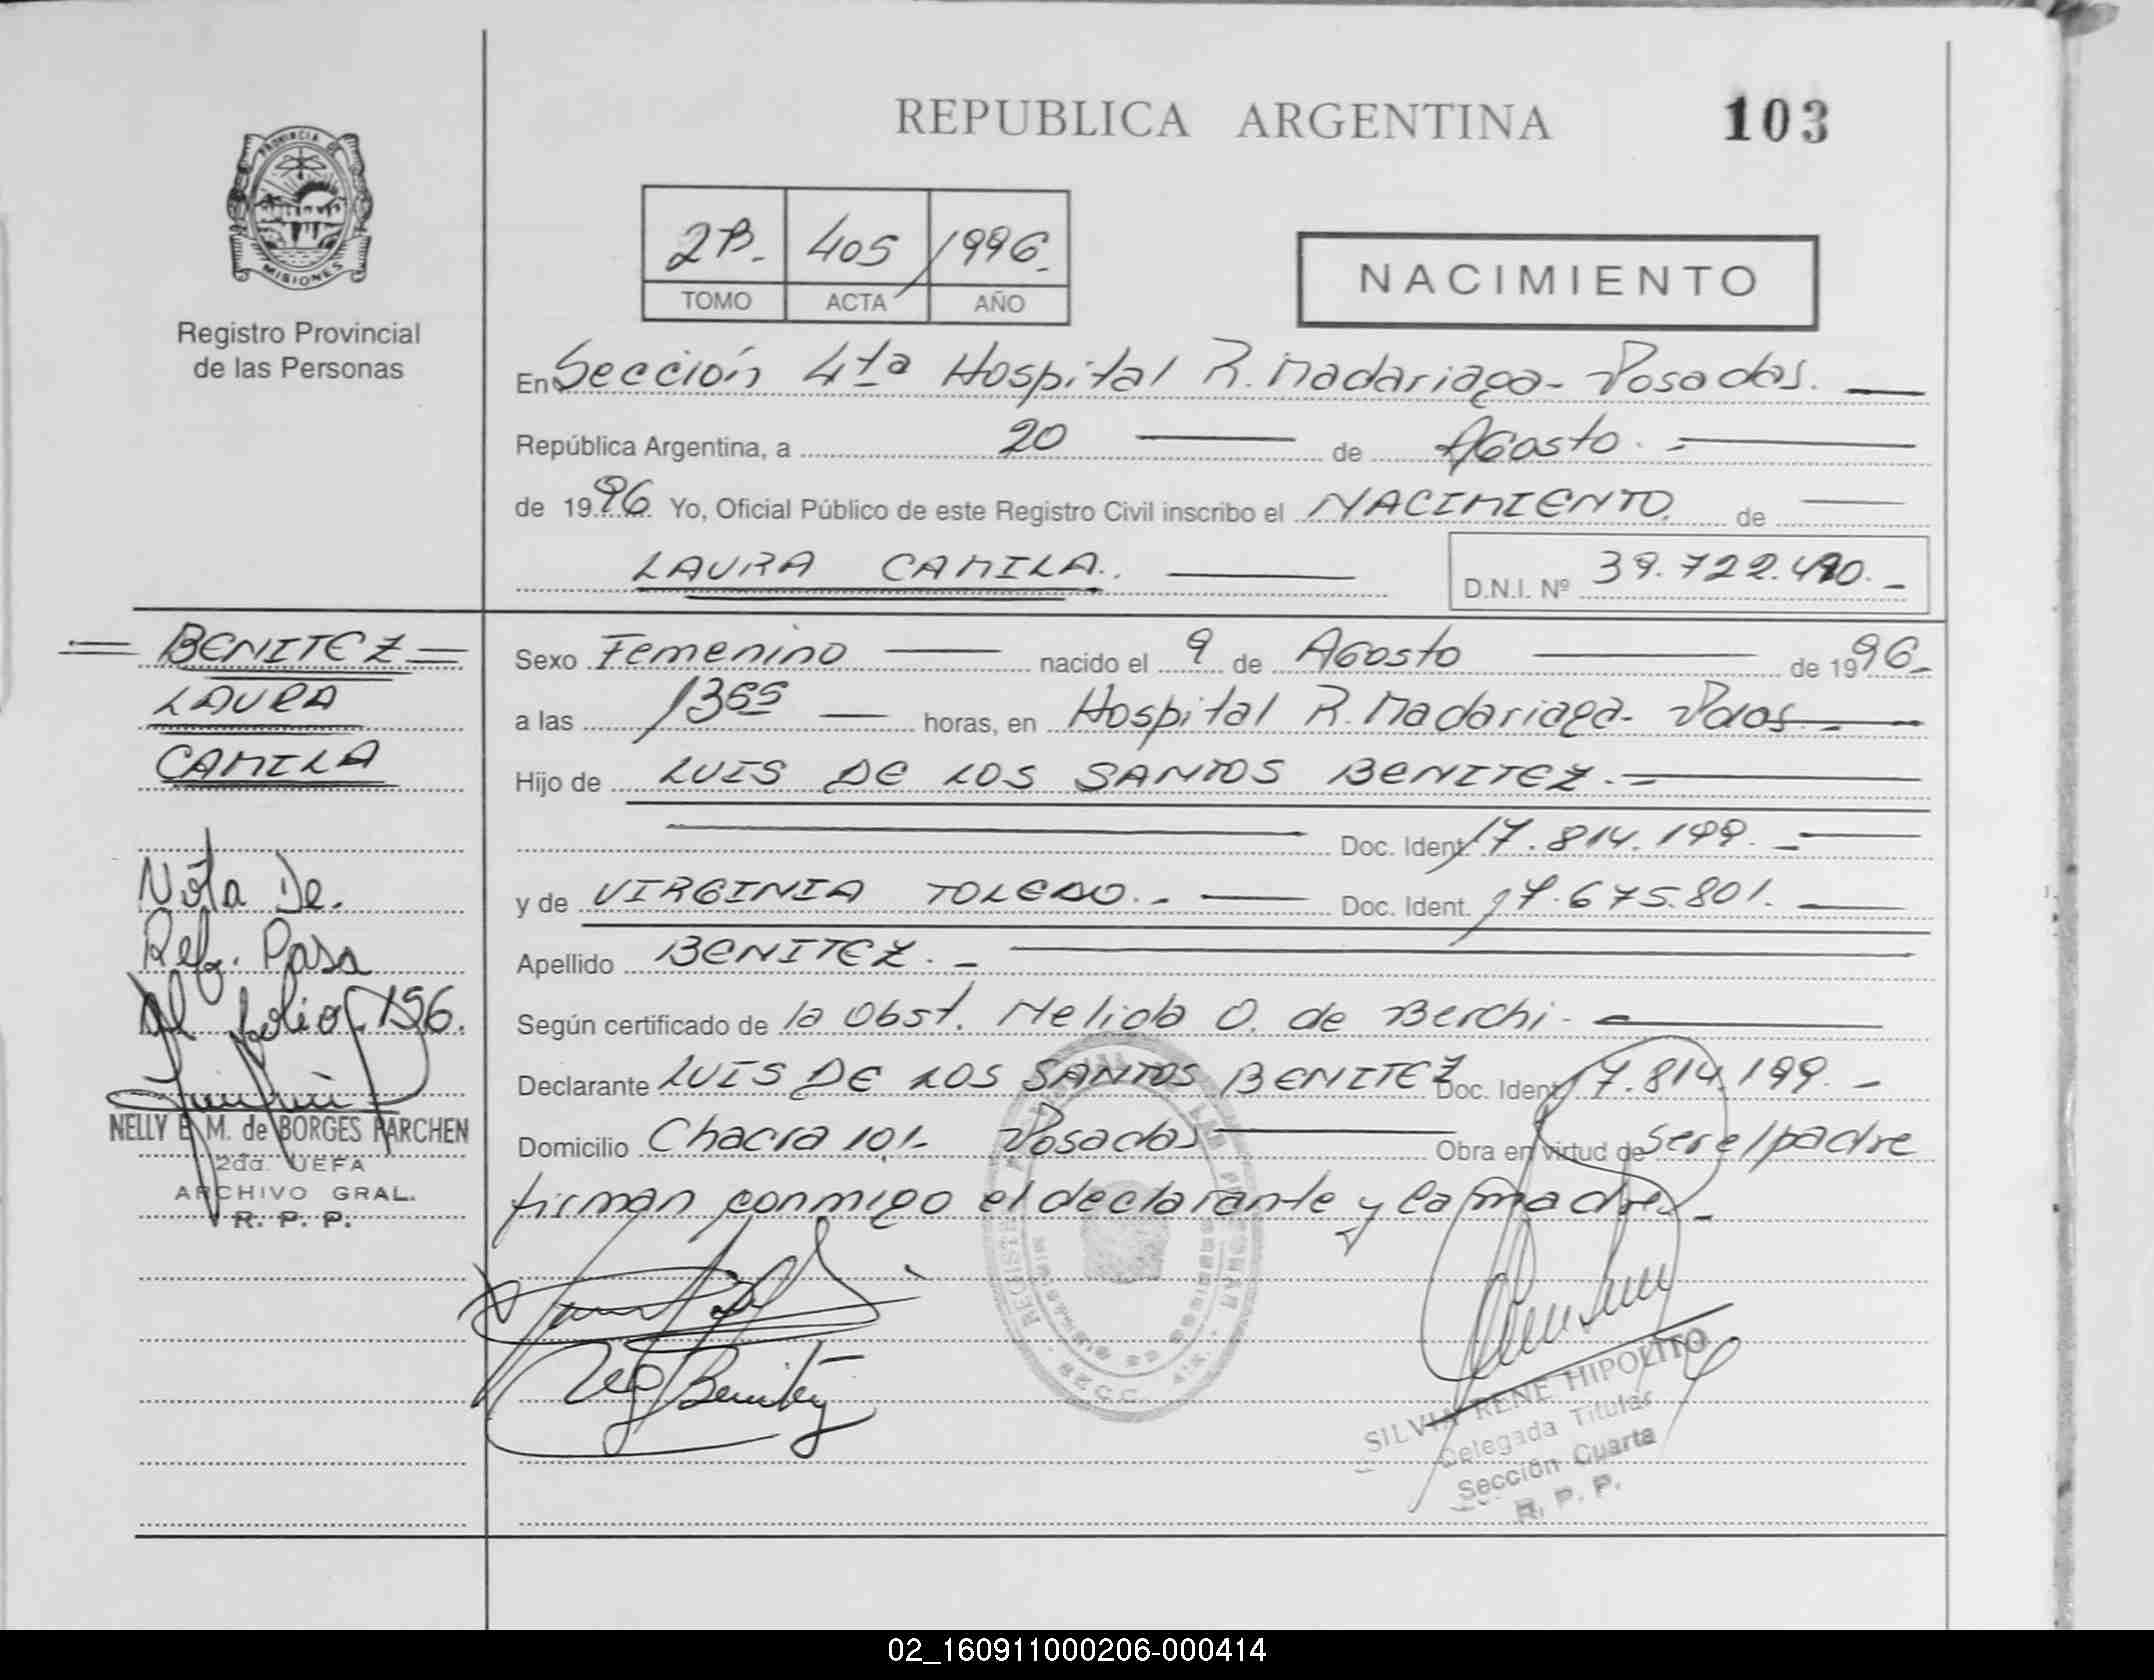 REPUBLICA ARGENTINA 103
PROVINCIA DE
MISIONES
Registro Provincial
de las Personas
2B.- 405 1996.-
TOMO ACTA AÑO
NACIMIENTO
En Sección 4ta Hospital R. Madariaga - Posadas.
República Argentina, a 20 de Agosto.-
de 1996 Yo, Oficial Público de este Registro Civil inscribo el NACIMIENTO. de
LAURA CAMILA. D.N.I. Nº 39.722.490.-
BENITEZ
LAURA
CAMILA
Sexo Femenino nacido el 9 de Agosto de 1996.-
a las 13 horas, en Hospital R. Madariaga - Pdas.-
Hijo de LUIS DE LOS SANTOS BENITEZ.-
Doc. Ident. 17.814.199.-
y de VIRGINIA TOLEDO.- Doc. Ident. 17.675.801.
Apellido BENITEZ.-
Según certificado de la Obst. Nelida O. de Berchi -
Declarante LUIS DE LOS SANTOS BENITEZ Doc. Ident. 17.814.199.-
Domicilio Chacra 101- Posadas Obra en virtud de ser el padre
firman conmigo el declarante y la madre.-
Nota De.
Ref. Pasa
Al folio 196.
NELLY E. M. de BORGES PARCHEN
2da. JEFA
ARCHIVO GRAL.
R. P. P.
Benitez
SILVIA RENE HIPOLITO
Delegada Titular
Sección Cuarta
R. P. P.
02_160911000206-000414